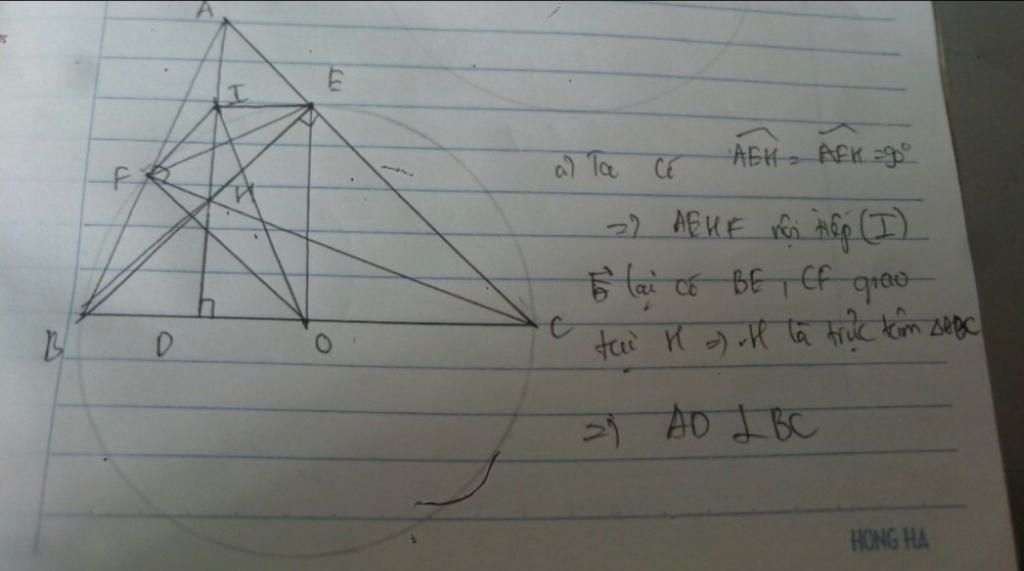 A
I
E
F
H
B
D
O
C
a) Ta có AEH = AFH = 90°
=> AEHF nội tiếp (I)
lại có BE, CF giao
tại H => H là trực tâm ΔABC
=> AD ⊥ BC
HONG HA